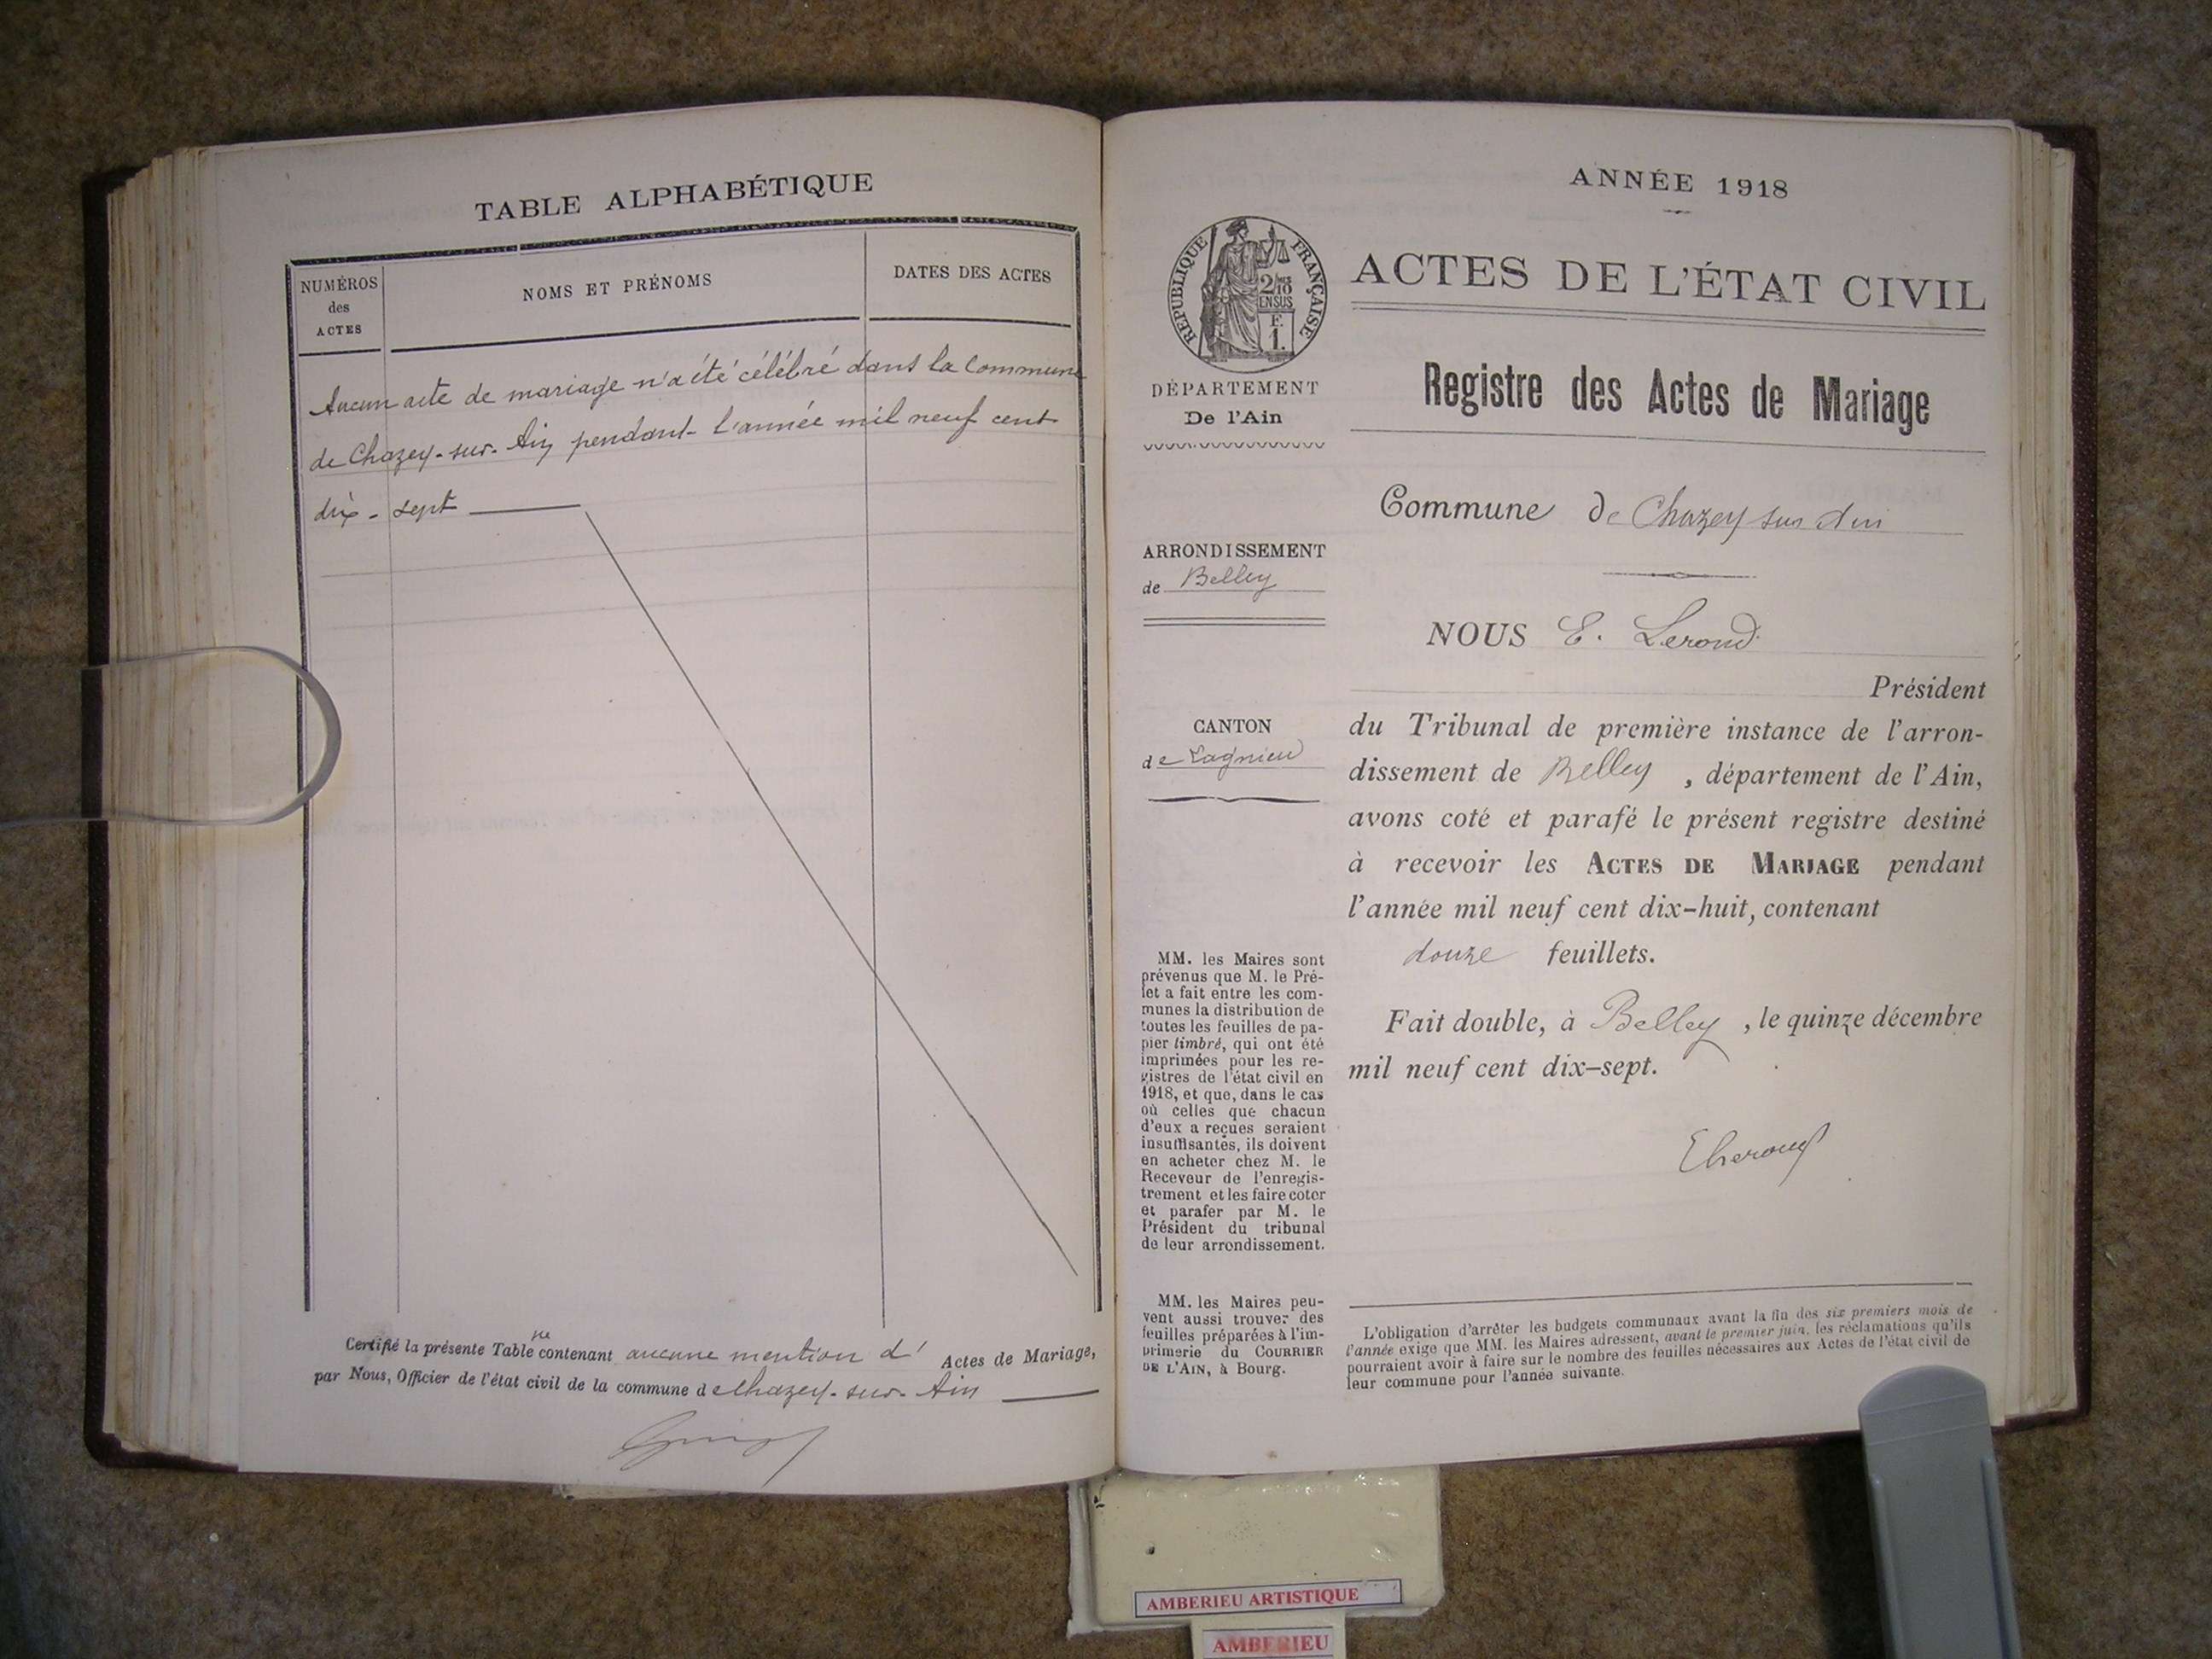 TABLE ALPHABÉTIQUE
NUMÉROS
des
ACTES
NOMS ET PRÉNOMS
DATES DES ACTES
Aucun acte de mariage n'a été célébré dans la Commune
de Chazey-sur-Ain pendant l'année mil neuf cent
dix-sept
Certifié la présente Table ne contenant aucune mention d' Actes de Mariage,
par Nous, Officier de l'état civil de la commune de Chazey-sur-Ain
ANNÉE 1918
RÉPUBLIQUE FRANÇAISE
2/10
EN SUS
F.
1.
DÉPARTEMENT
De l'Ain
ARRONDISSEMENT
de Belley
CANTON
de Lagnieu
MM. les Maires sont
prévenus que M. le Pré-
fet a fait entre les com-
munes la distribution de
toutes les feuilles de pa-
pier timbré, qui ont été
imprimées pour les re-
gistres de l'état civil en
1918, et que, dans le cas
où celles que chacun
d'eux a reçues seraient
insuffisantes, ils doivent
en acheter chez M. le
Receveur de l'enregis-
trement et les faire coter
et parafer par M. le
Président du tribunal
de leur arrondissement.
MM. les Maires peu-
vent aussi trouver des
feuilles préparées à l'im-
primerie du COURRIER
DE L'AIN, à Bourg.
ACTES DE L'ÉTAT CIVIL
Registre des Actes de Mariage
Commune de Chazey sur Ain
NOUS E. Lerond
Président
du Tribunal de première instance de l'arron-
dissement de Belley, département de l'Ain,
avons coté et parafé le présent registre destiné
à recevoir les ACTES DE MARIAGE pendant
l'année mil neuf cent dix-huit, contenant
douze feuillets.
Fait double, à Belley, le quinze décembre
mil neuf cent dix-sept.
L'obligation d'arrêter les budgets communaux avant la fin des six premiers mois de
l'année exige que MM. les Maires adressent, avant le premier juin, les réclamations qu'ils
pourraient avoir à faire sur le nombre des feuilles nécessaires aux Actes de l'état civil de
leur commune pour l'année suivante.
AMBERIEU ARTISTIQUE
AMBERIEU